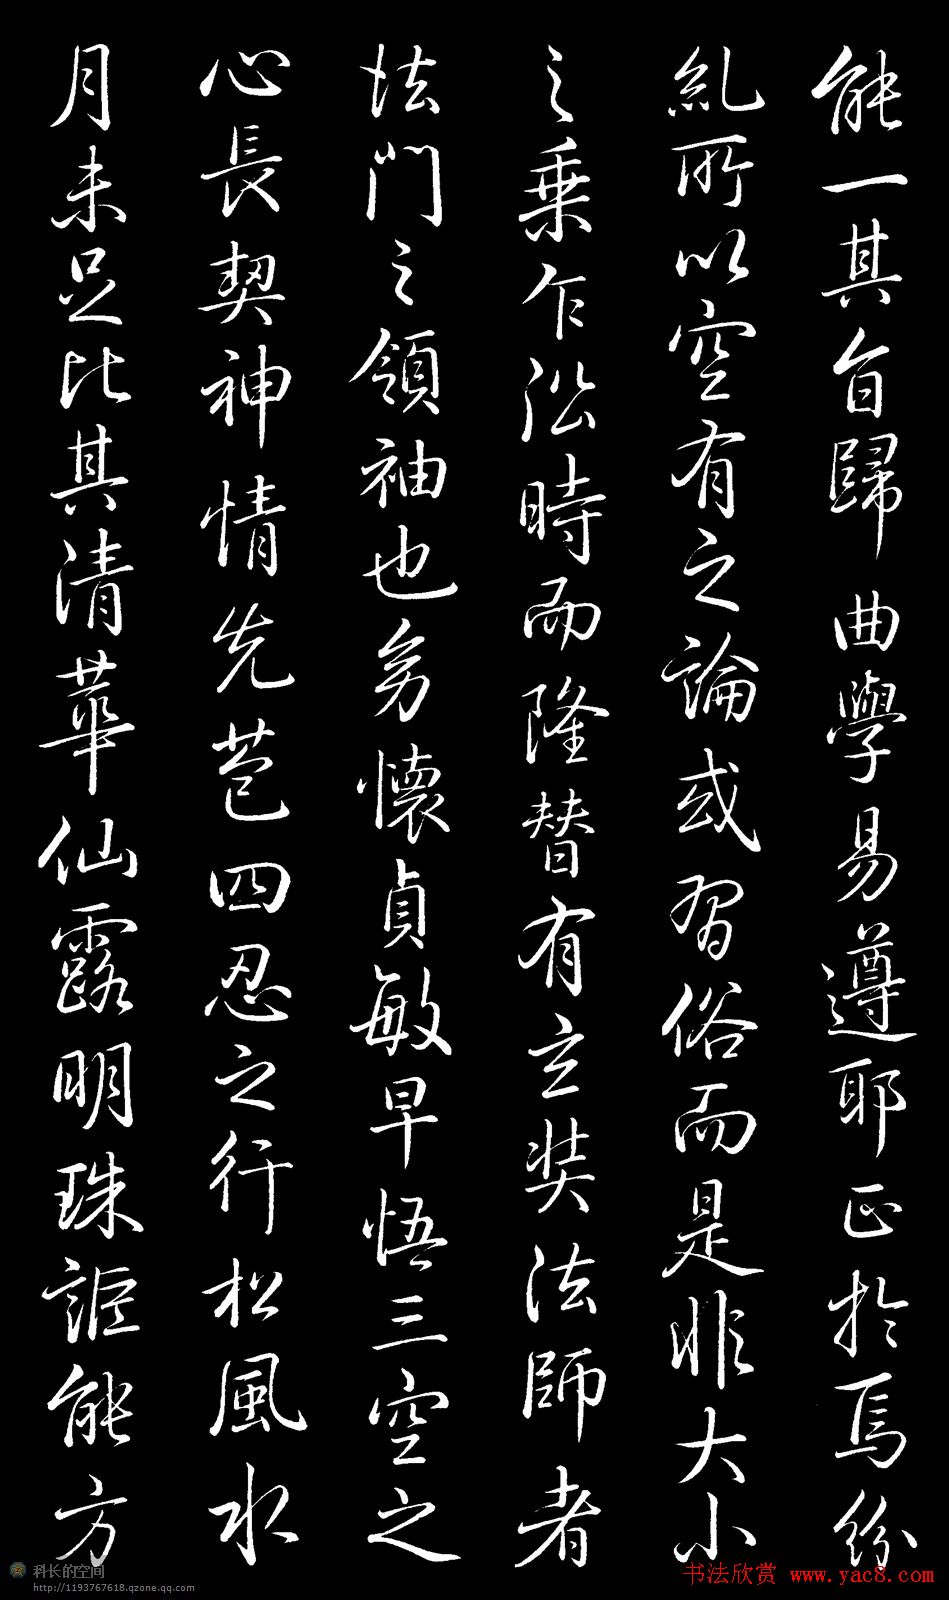 能一其旨歸曲學易遵耶正於焉紛
糺所以空有之論或習俗而是非大小
之乗乍沿時而隆替有玄奘法師者
法門之領袖也㓜懷貞敏早悟三空之
心長契神情先苞四忍之行松風水
月未足比其清華仙露明珠詎能方
科长的空间
http://1193767618.qzone.qq.com
书法欣赏 www.yac8.com